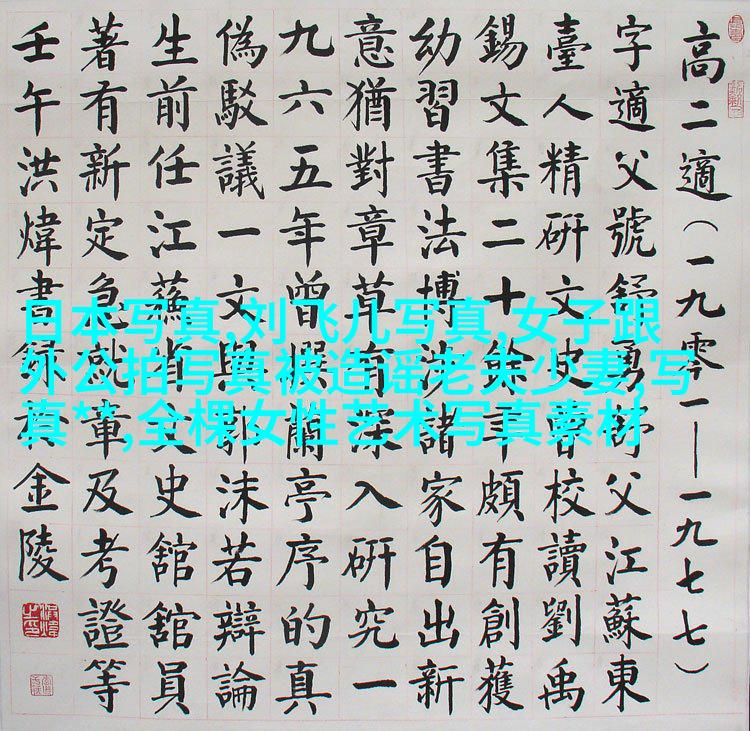 高二適（一九零一—一九七七）
字適父號舒舒父江蘇東
臺人精研文史曾校讀劉禹
錫文集二十餘年頗有創獲
幼習書法博涉諸家自出新
意猶對章草有深入研究一
九六五年曾撰蘭亭序的真
偽駁議一文與郭沫若辯論
生前任江蘇省文史舘舘員
著有新定急就章及考證等
壬午洪煒書錄於金陵
日本写真,刘飞儿写真,女子跟
外公拍写真被造谣老夫少妻,写
真**,全棵女性艺术写真素材